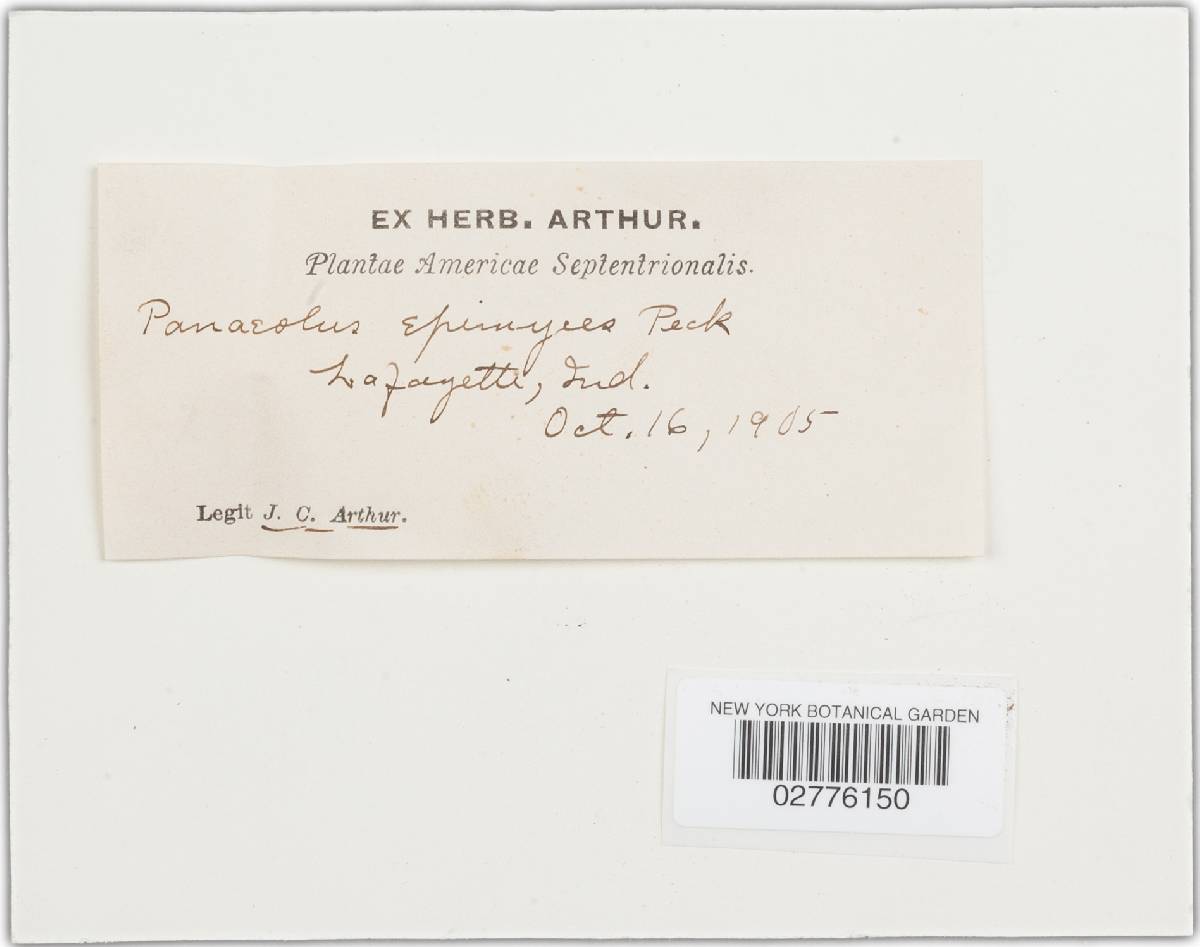 EX HERB. ARTHUR.
Plantae Americae Septentrionalis.
Panaeolus epimyces Peck
Lafayette, Ind.
Oct. 16, 1905
Legit J. C. Arthur.
NEW YORK BOTANICAL GARDEN
02776150